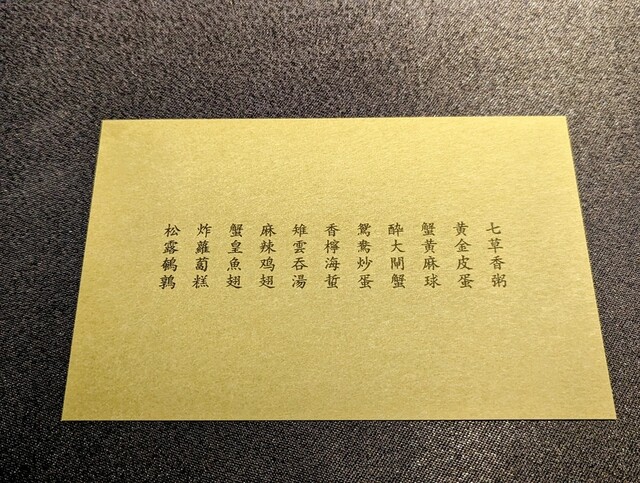 七草香粥
黄金皮蛋
蟹黄麻球
酔大閘蟹
鴛鴦炒蛋
香檸海蜇
雉雲吞湯
麻辣鸡翅
蟹皇魚翅
炸蘿蔔糕
松露鵪鶉